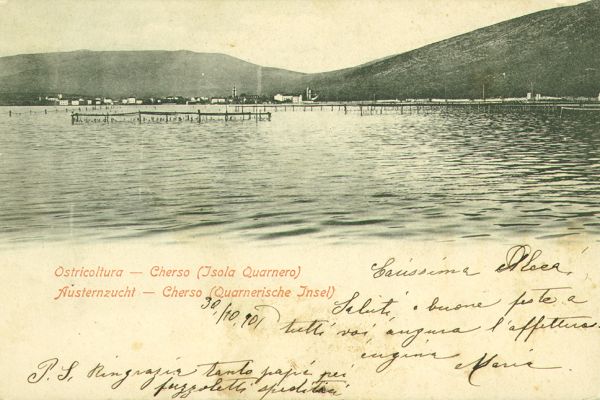 Ostricoltura — Cherso (Isola Quarnero)
Austernzucht — Cherso (Quarnerische Insel)
Carissima
30/10.901
Saluti e buone feste a
tutti voi augura l'affettuos.
cugina
Maria
P.S. Ringrazia tanto papà pei
fazzoletti spediti